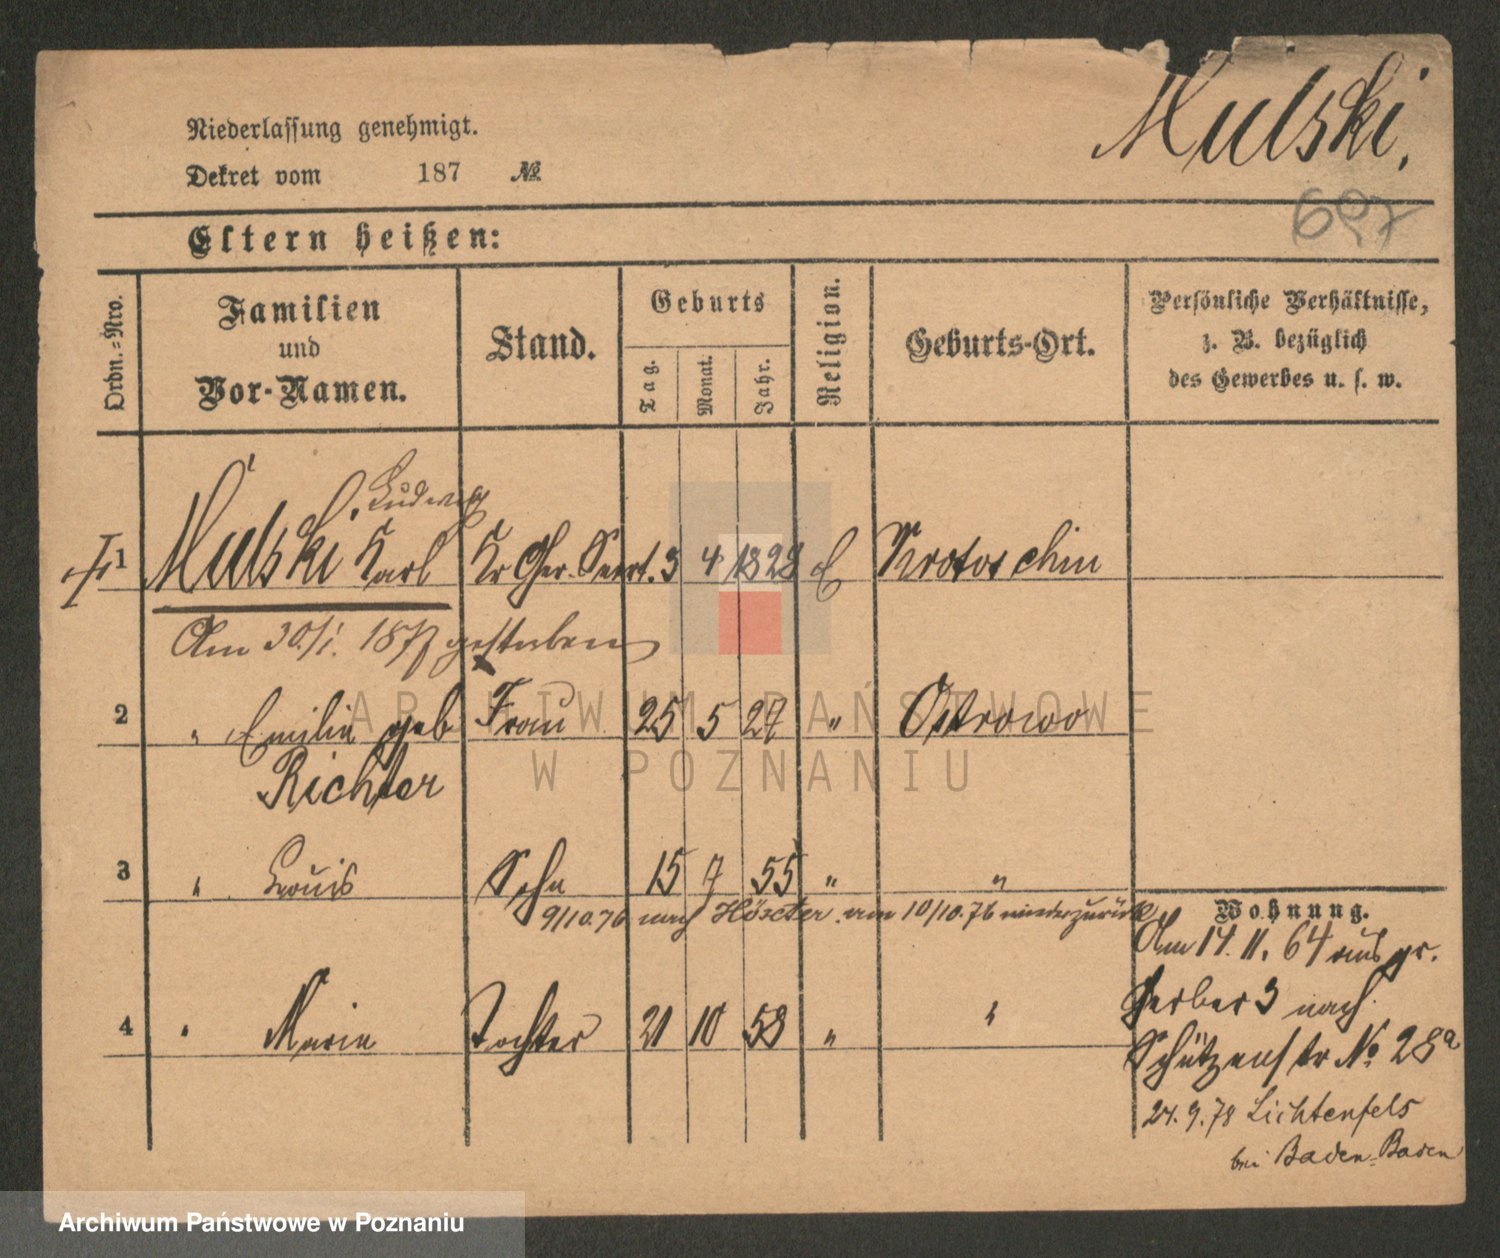 Mulski.
Niederlassung genehmigt.
Dekret vom 187 №
697
Eltern heißen:
Ordn.-Nro.
Familien
und
Vor-Namen.
Stand.
Geburts
Tag.
Monat.
Jahr.
Religion.
Geburts-Ort.
Persönliche Verhältnisse,
z. B. bezüglich
des Gewerbes u. s. w.
Ludwig
1 Mulski Karl Kr Ger. Secrt. 3 4 1828 E Krotoschin
Am 30./1. 1877 gestorben
2 " Emilie geb Frau 25 5 27 " Ostrowo
Richter
3 " Louis Sohn 15 7 55 " "
9/10.76 nach Höxter am 10/10.76 wiederzurück
4 " Marie Tochter 21 10 58 " "
Wohnung.
Am 14. 11. 64 aus gr.
Gerber 3 nach
Schützenstr No 28a
24.9.78 Lichtenfels
bei Baden-Baden
ARCHIWUM PAŃSTWOWE
W POZNANIU
Archiwum Państwowe w Poznaniu